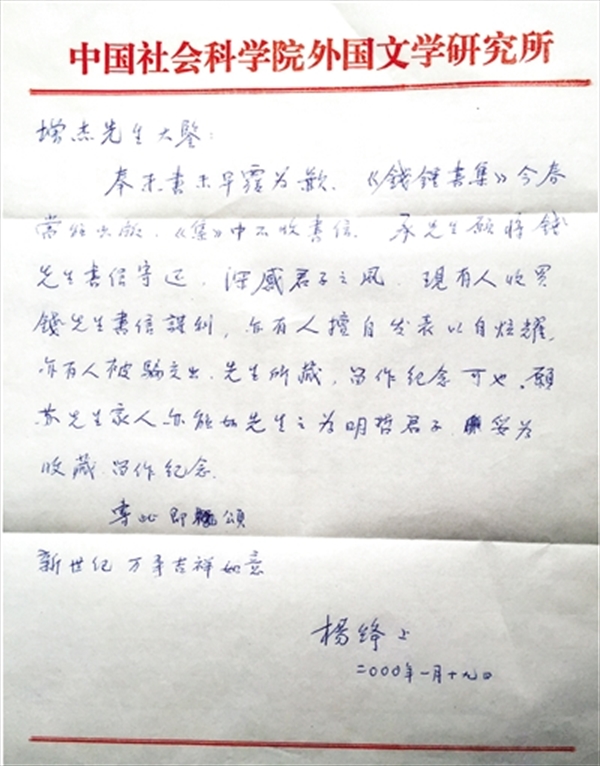 中国社会科学院外国文学研究所
增杰先生大鑒：
奉来書未早覆为歉、《錢鍾書集》今春
當能出版、《集》中不收書信、承先生願将錢
先生書信寄还，深感君子之风、現有人收買
錢先生書信謀利，亦有人擅自发表以自炫耀，
亦有人被骗交出、先生所藏，留作纪念可也、願
苏先生家人亦能如先生之为明哲君子，妥为
收藏、留作纪念、
専此即頌
新世纪 万事吉祥如意
楊绛上
二000年一月十九日